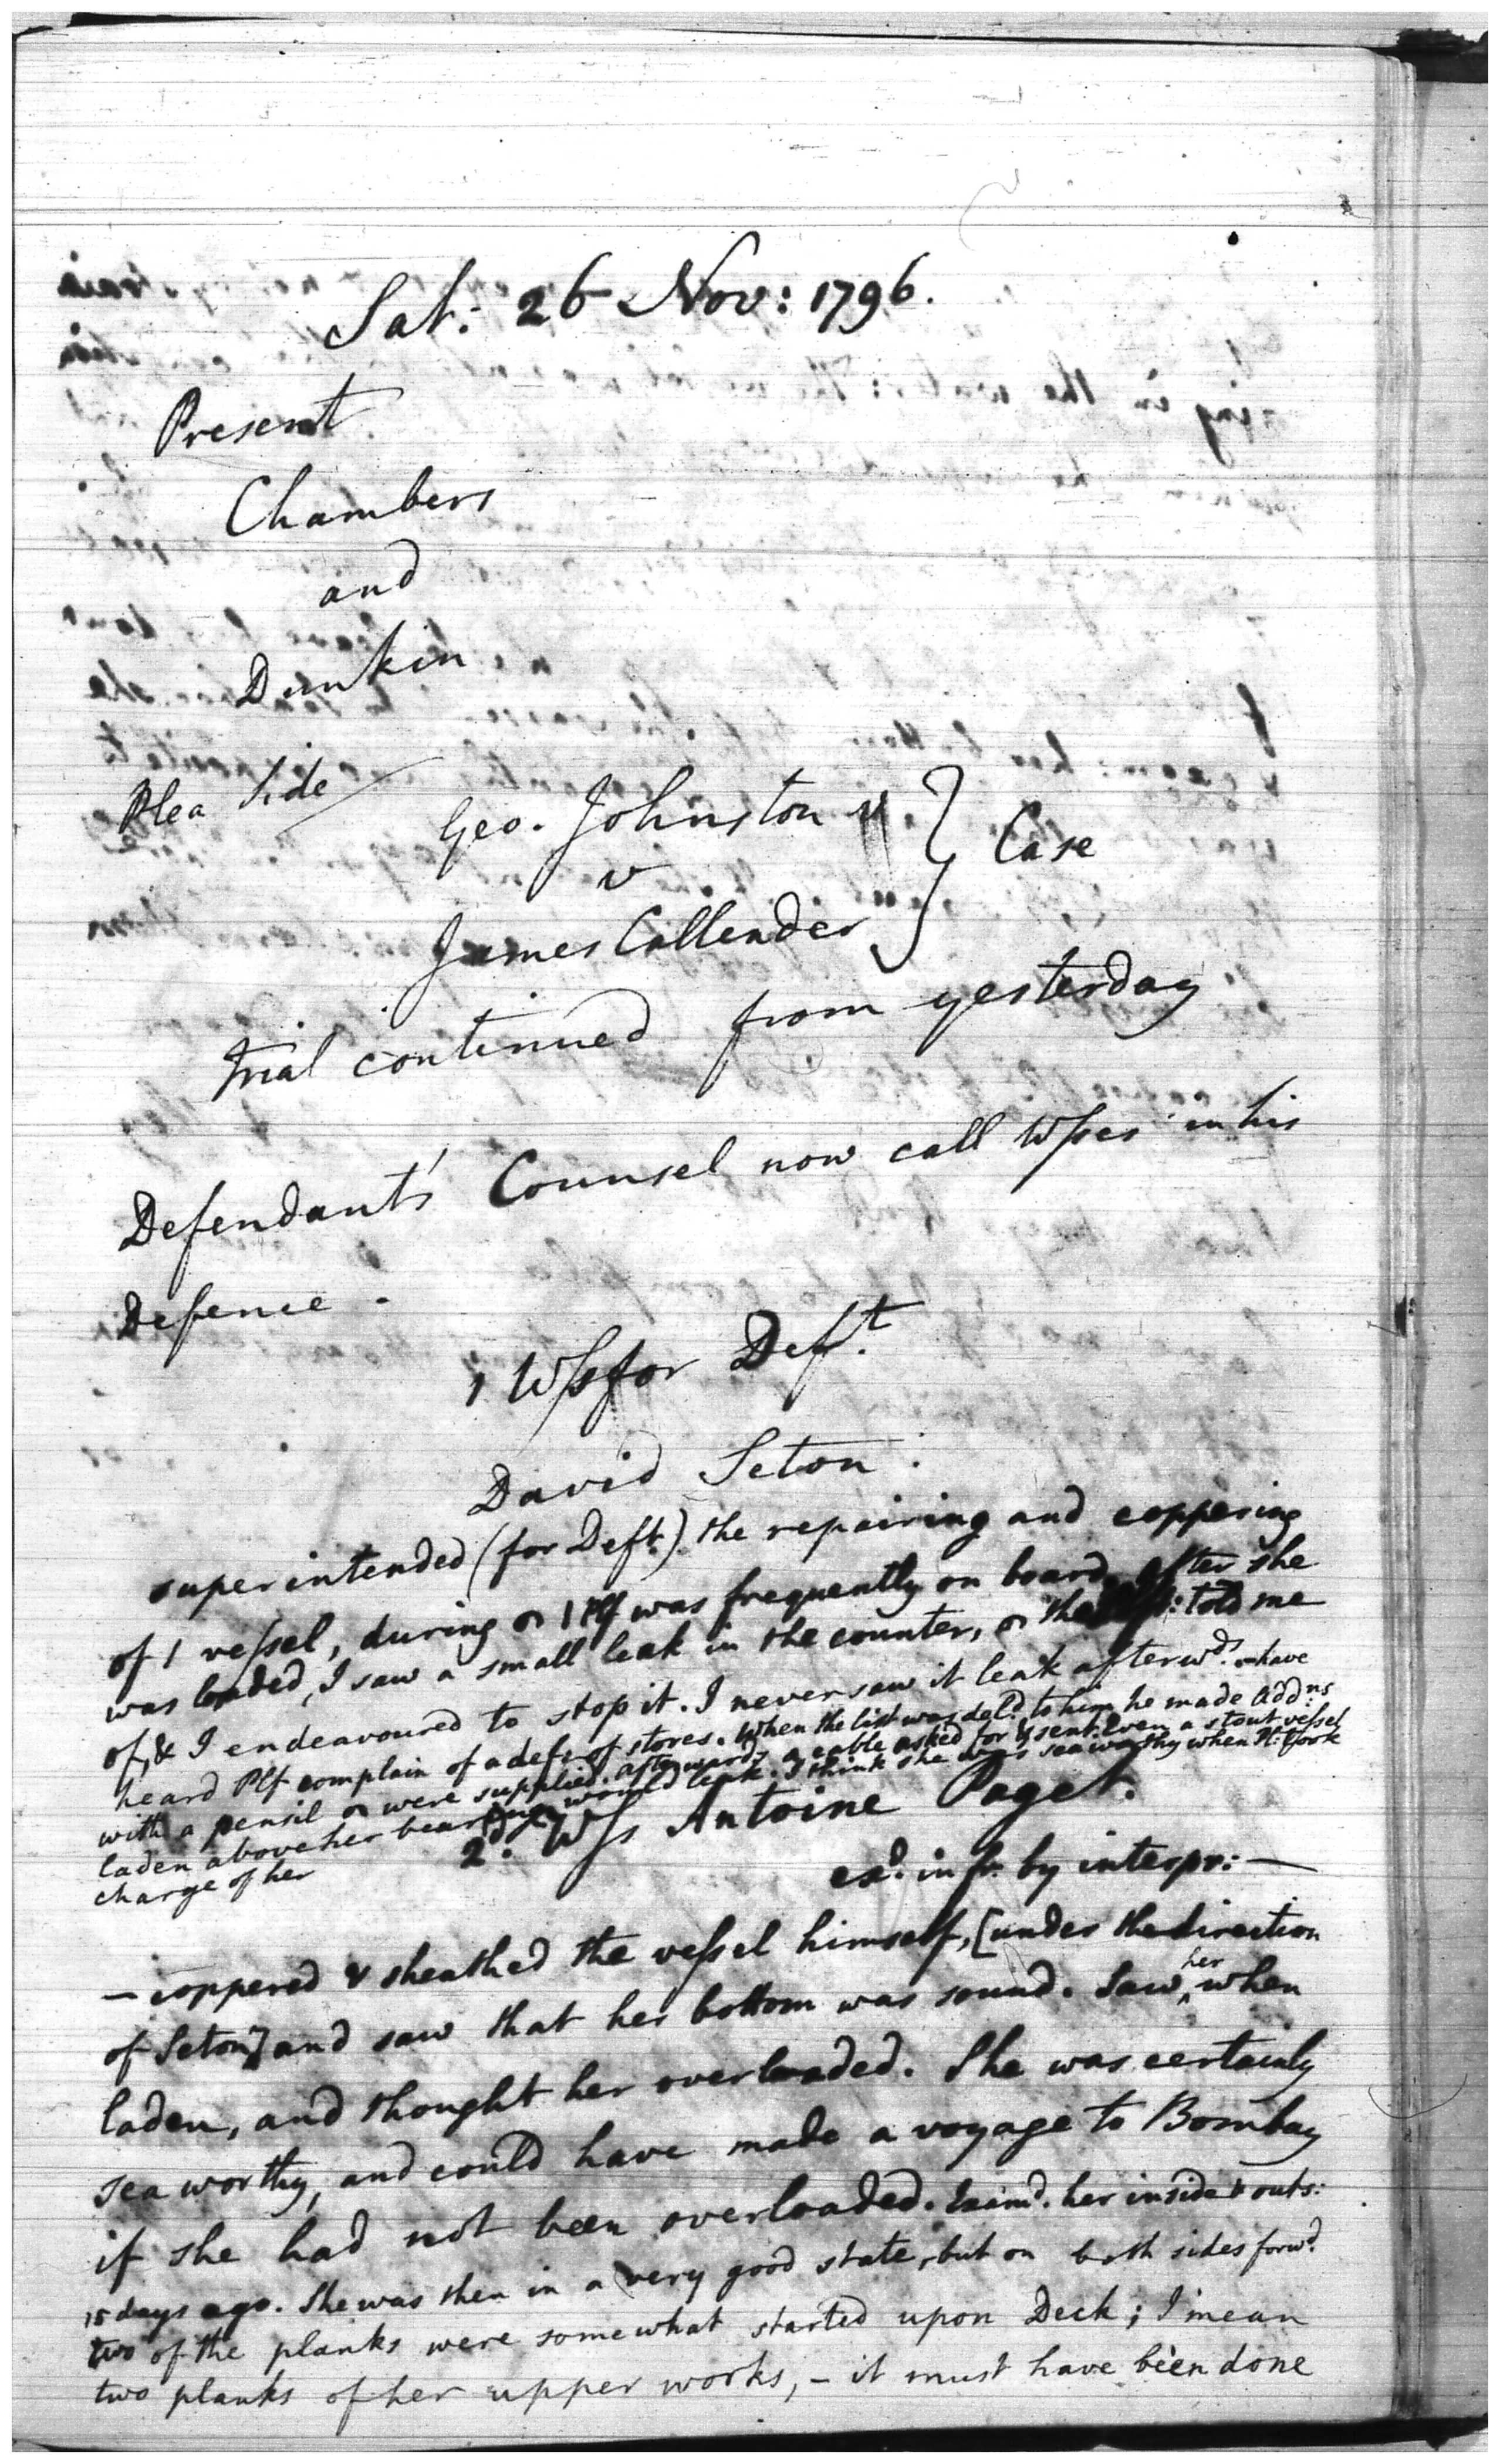 Sat: 26 Nov: 1796.
Present
Chambers
and
Dunkin
Plea Side
Geo. Johnston
v
James Callender } Case
Trial continued from yesterday
Defendant's Counsel now call Wſses in his
Defence -
1 Wſs for Deft.
David Seton.
superintended (for Deft.) the repairing and coppering
of / veſsel, during / Plf was frequently on board, after she
was loaded, I saw a small leak in the counter, told me
of, & I endeavoured to stop it. I never saw it leak afterwds. have
heard Plf complain of a def: of stores. When the list was deld. to him he made addns
with a pensil were supplied. afterwards a cable asked for & sent. Even a stout veſsel
laden above her bearings would leak. I think she was seaworthy when took
charge of her
2d. Wſs Antoine Paget.
exd. in fr. by interpr: —
— coppered & sheathed the veſsel himself, [under the direction
of Seton] and saw that her bottom was sound. Saw her when
laden, and thought her overloaded. She was certainly
sea worthy, and could have made a voyage to Bombay
if she had not been overloaded. Examd. her inside & outs:
15 days ago. She was then in a very good state, but on both sides forwd.
two of the planks were somewhat started upon Deck; I mean
two planks of her upper works, - it must have been done